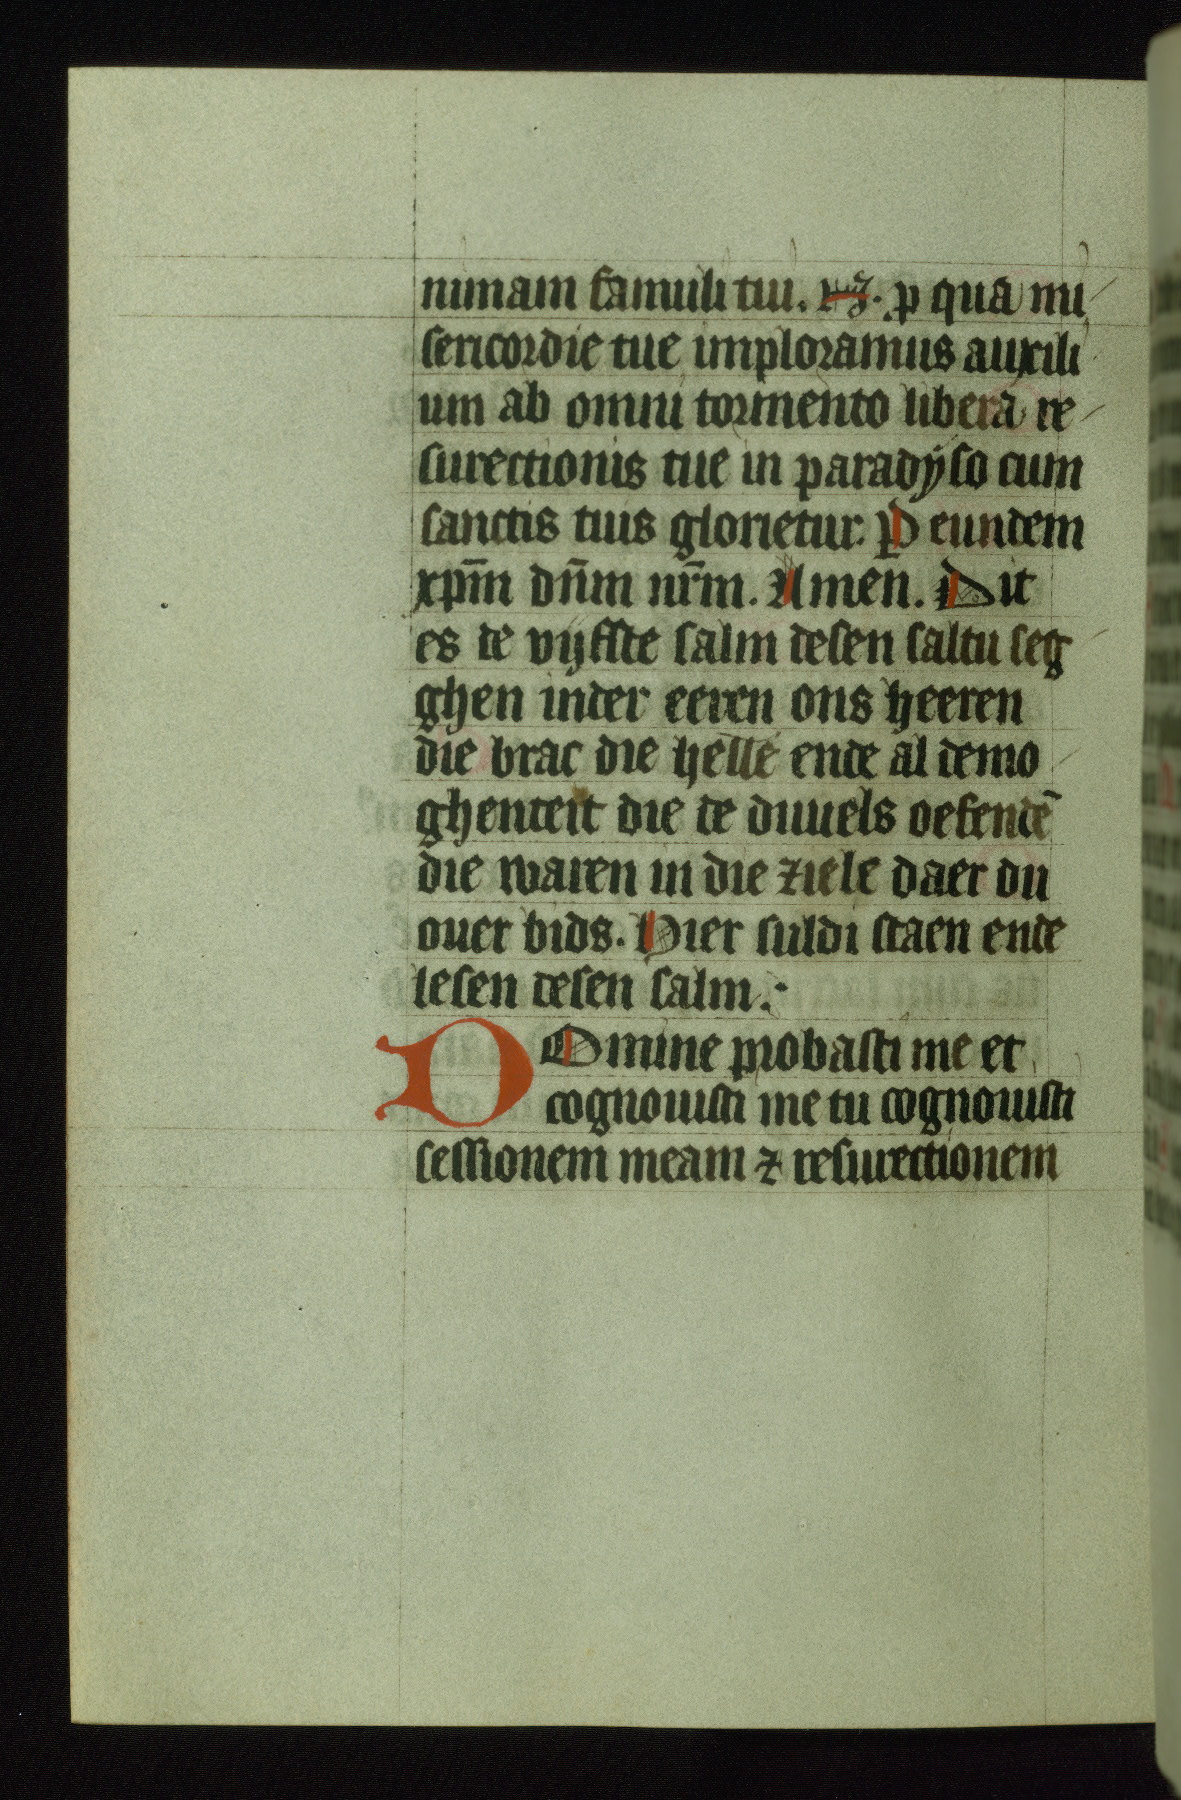 nimam famuli tui. N̄. p̲ qua mi
sericordie tue imploramus auxili
um ab omni tormento libera re
surectionis tue in paradyso cum
sanctis tuis glorietur. P̲ eundem
xp̄m dn̄m nr̄m. Amen. Dit
es de vijfste salm desen saltu seg
ghen inder eeren ons heeren
die brac die helle ende al demo
ghenteit die de duuels oefendē
die waren in die ziele daer du
ouer bids. Hier suldi staen ende
lesen desen salm.
DOmine probasti me et
cognouisti me tu cognouisti
sessionem meam ⁊ resurectionem